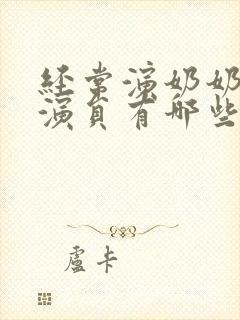 经常演奶奶
演员有哪些
盧卡